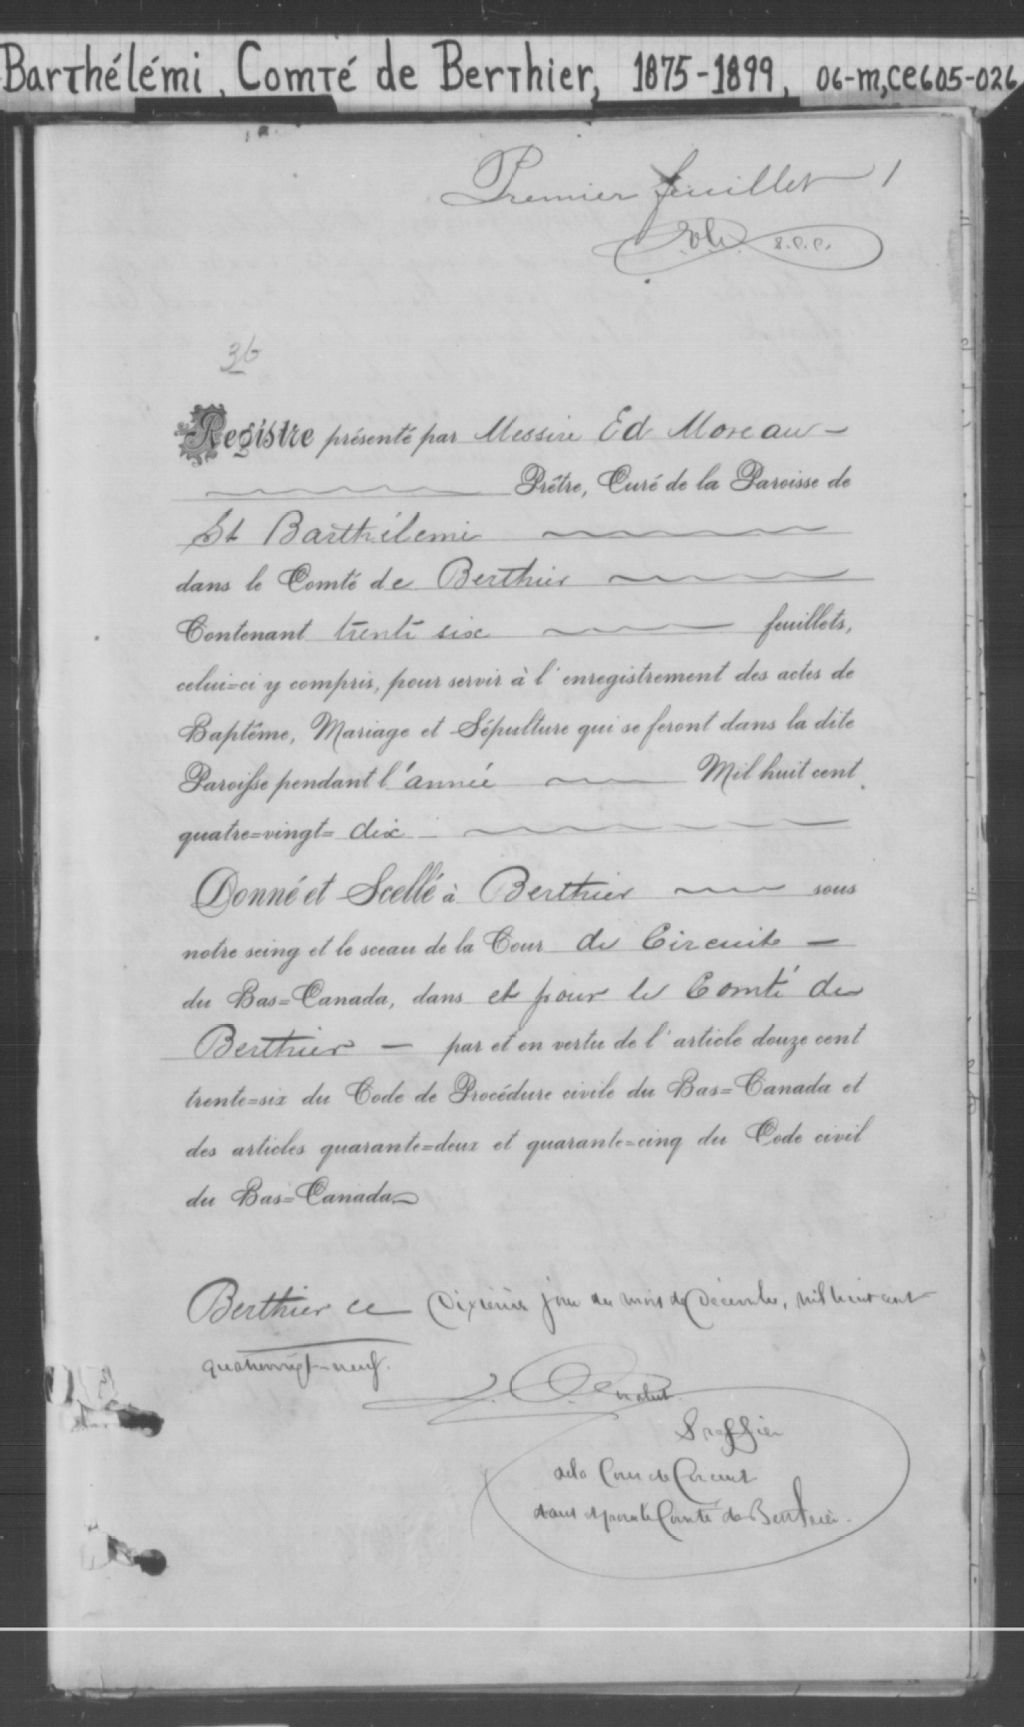 Barthélémi, Comté de Berthier, 1875-1899, 06-M,CE605-026
Premier feuillet 1
36
Registre présenté par Messire Ed Moreau
Prêtre, Curé de la Paroisse de
St Barthélemi
dans le Comté de Berthier
Contenant trente six feuillets,
celui=ci y compris, pour servir à l'enregistrement des actes de
Baptême, Mariage et Sépulture qui se feront dans la dite
Paroisse pendant l'année Mil huit cent
quatre=vingt= dix
Donné et Scellé à Berthier sous
notre seing et le sceau de la Cour de Circuit
du Bas=Canada, dans et pour le Comté de
Berthier par et en vertu de l'article douze cent
trente=six du Code de Procédure civile du Bas=Canada et
des articles quarante=deux et quarante=cinq du Code civil
du Bas=Canada
Berthier ce Dixième jour du mois de Décembre, mil huit cent
quatrevingt-neuf.
Greffier
de la Cour de Circuit
dans et pour le Comté de Berthier.